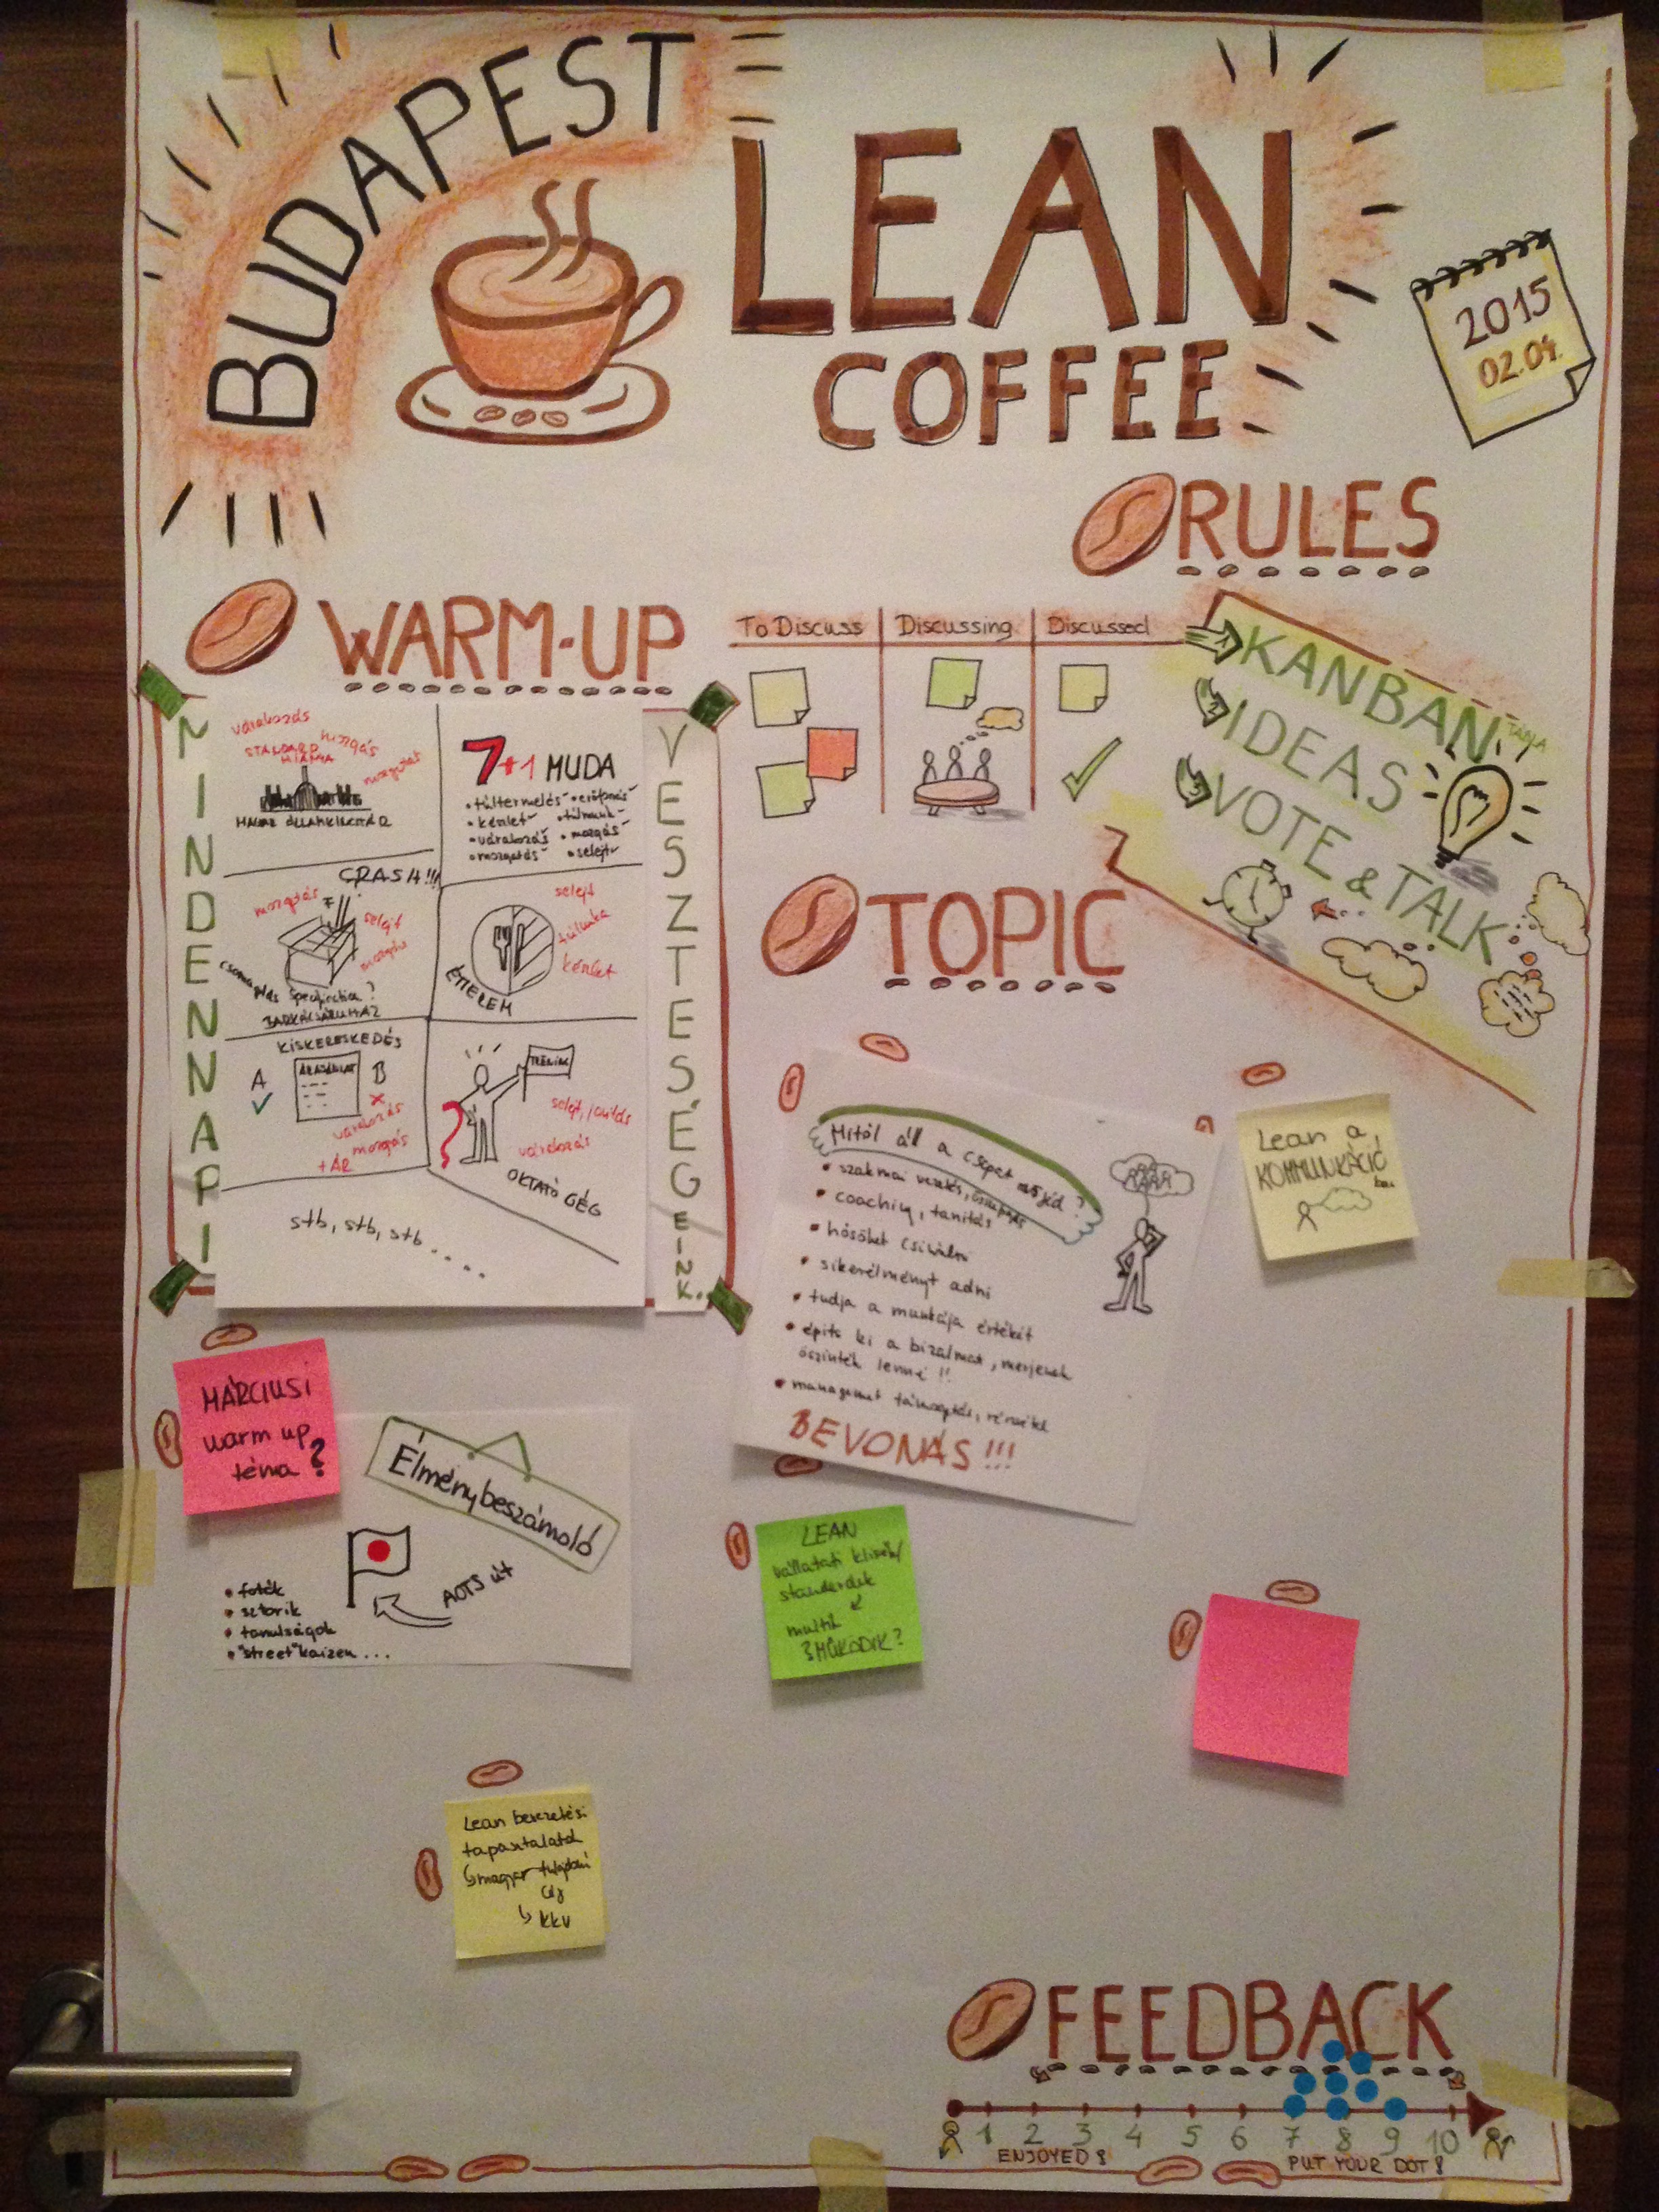 BUDAPEST
LEAN
COFFEE
2015
02.04.
RULES
To Discuss
Discussing
Discussed
KANBAN TÁBLA
IDEAS
VOTE & TALK
WARM-UP
MINDENNAPI
VESZTESÉGEINK..
várakozás
mozgás
HIÁNYA
mozgatás
7+1 MUDA
• túltermelés
• készlet
• várakozás
• mozgatás
• mozgás
• selejt
CRASH!!!
mozgatás
selejt
mozgás
csomagolás
BARKÁCSÁRUHÁZ
selejt
túlmunka
készlet
ÉTTEREM
KISKERESKEDÉS
A
B
várakozás
mozgás
+ ÁR
TRÉNING
selejt, javítás
várakozás
OKTATÓ CÉG
stb, stb, stb....
TOPIC
Mitől áll a csapat mögéd?
• szakmai vezetés,
• coaching, tanítás
• hősöket csinálni
• sikerélményt adni
• tudja a munkája értékét
• építs ki a bizalmat, merjenek
őszinték lenni !!
• management támogatás, részvétel
BEVONÁS!!!
Lean a
KOMMUNIKÁCIÓ
ban
MÁRCIUSI
warm up
téma?
Élménybeszámoló
AOTS út
• fotók
• sztorik
• tanulságok
• "street" kaizen...
LEAN
vállalati klisék/
standardok
multik
?MŰKÖDIK?
Lean bevezetési
tapasztalatok
magyar tulajdonú
cég
KKV
FEEDBACK
1 2 3 4 5 6 7 8 9 10
ENJOYED?
PUT YOUR DOT!